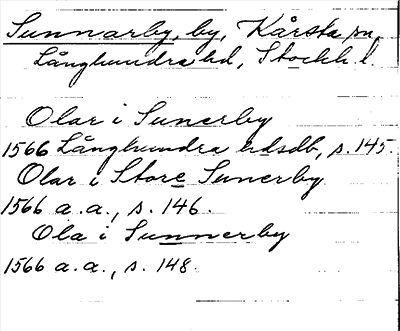 Sunnarby, by, Kårsta sn,
Långhundra hd, Stockh. l.
Olar i Sunerby
1566 Långhundra hdsdb, s. 145.
Olar i Store Sunerby
1566 a. a., s. 146.
Ola i Sunnerby
1566 a. a., s. 148.